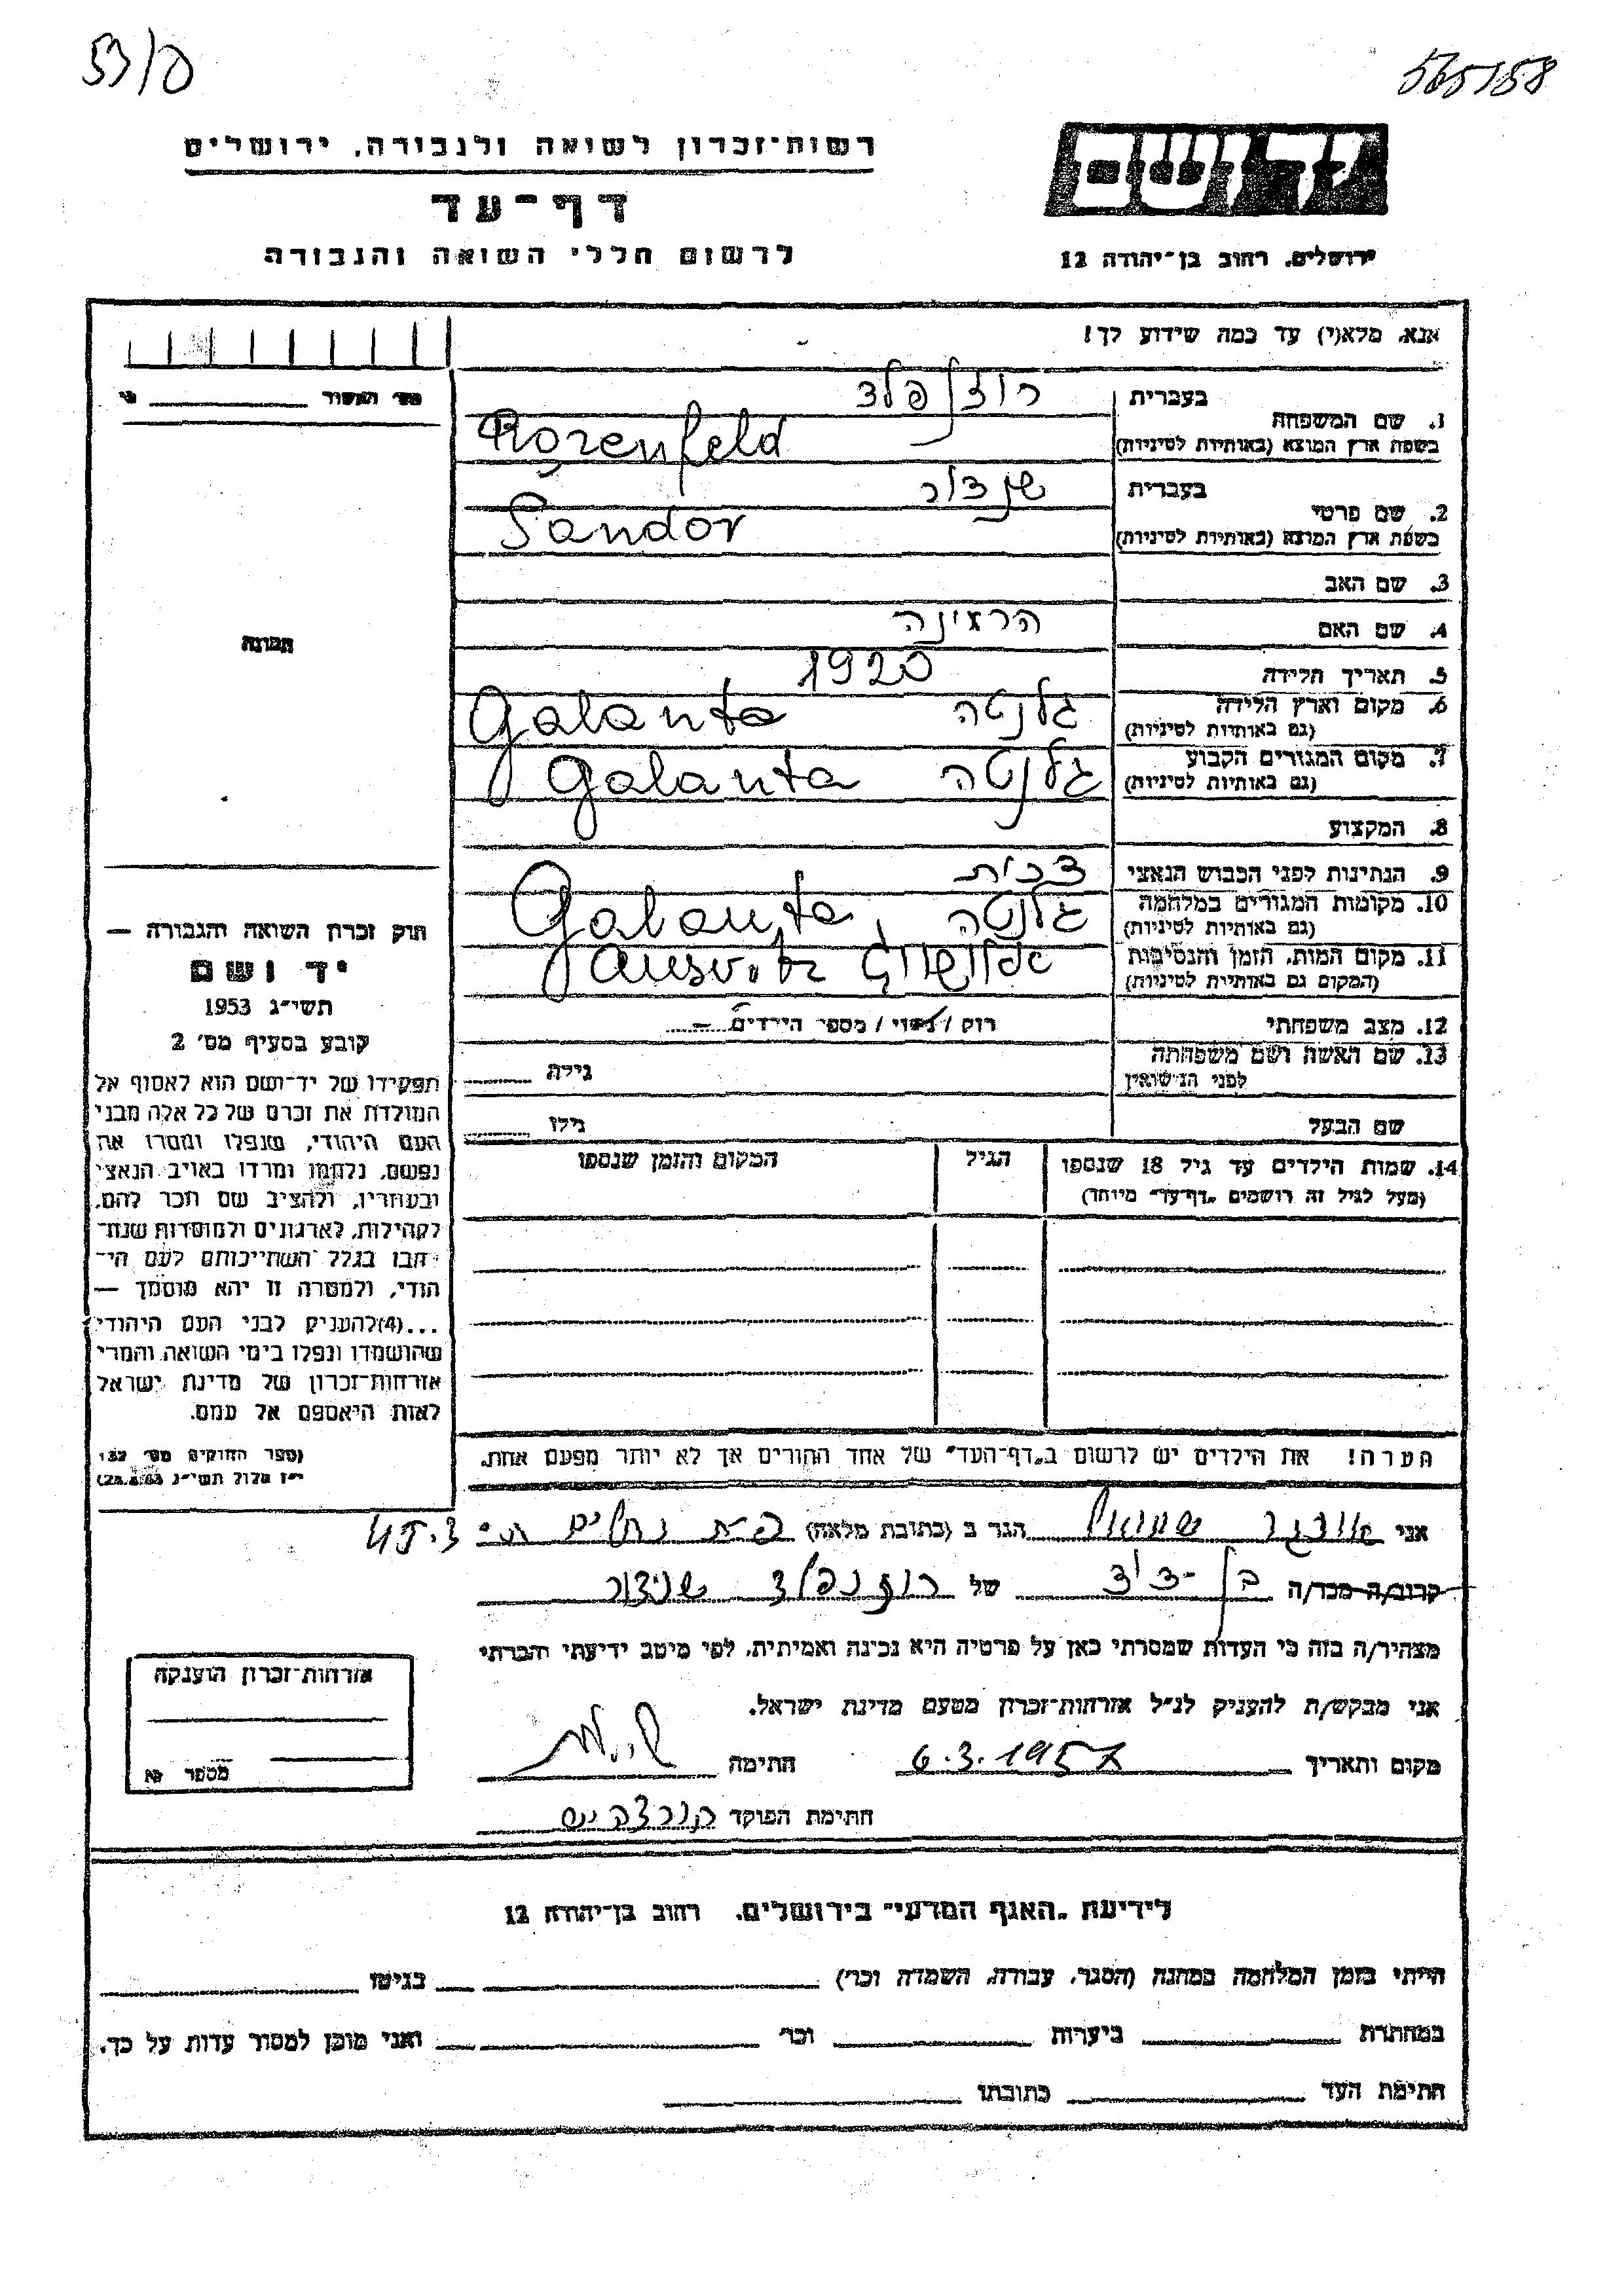 53/ס
565158
רשות־זכרון לשואה ולגבורה, ירושלים
דף־עד
לרשום חללי השואה והגבורה
יד ושם
ירושלים, רחוב בן־יהודה 12
אנא, מלא(י) עד כמה שידוע לך!
1. שם המשפחה בעברית רוזנפלד
בשפת ארץ המוצא (באותיות לטיניות) Rozenfeld
2. שם פרטי בעברית שנדור
בשפת ארץ המוצא (באותיות לטיניות) Sandor
3. שם האב
4. שם האם הראינה
5. תאריך הלידה 1920
6. מקום וארץ הלידה גלנטה Galanta
(גם באותיות לטיניות)
7. מקום המגורים הקבוע גלנטה Galanta
(גם באותיות לטיניות)
8. המקצוע
9. הנתינות לפני הכבוש הנאצי
10. מקומות המגורים במלחמה גלנטה, Galanta
(גם באותיות לטיניות)
11. מקום המות, הזמן והנסיבות
(המקום גם באותיות לטיניות)
12. מצב משפחתי רוק / נשוי / מספר הילדים –
13. שם האשה ושם משפחתה גילה
לפני הנישואין
שם הבעל גילו
14. שמות הילדים עד גיל 18 שנספו הגיל המקום והזמן שנספו
(מעל לגיל זה רושמים „דף־עד״ מיוחד)
הערה! את הילדים יש לרשום ב„דף־העד״ של אחד ההורים אך לא יותר מפעם אחת.
מס׳ האשור
תמונה
חוק זכרון השואה והגבורה —
יד ושם
תשי״ג 1953
קובע בסעיף מס׳ 2
תפקידו של יד־ושם הוא לאסוף אל
המולדת את זכרם של כל אלה מבני
העם היהודי, שנפלו ומסרו את
נפשם, נלחמו ומרדו באויב הנאצי
ובעוזריו, ולהציב שם וזכר להם,
לקהילות, לארגונים ולמוסדות שנח־
רבו בגלל השתייכותם לעם הי־
הודי, ולמטרה זו יהא מוסמך —
...(4)להעניק לבני העם היהודי
שהושמדו ונפלו בימי השואה והמרי
אזרחות־זכרון של מדינת ישראל
לאות היאספם אל עמם.
(ספר החוקים מס׳ 132
אני שמואל הגר ב (כתובת מלאה)
קרוב/ה מכר/ה בן-דוד של רוזנפלד שנידור
מצהיר/ה בזה כי העדות שמסרתי כאן על פרטיה היא נכונה ואמיתית, לפי מיטב ידיעתי והכרתי
אני מבקש/ת להעניק לנ״ל אזרחות־זכרון מטעם מדינת ישראל.
מקום ותאריך 6.3.1957 חתימה
חתימת הפוקד
אזרחות־זכרון הוענקה
מספר
לידיעת „האגף המדעי״ בירושלים, רחוב בן־יהודה 12
הייתי בזמן המלחמה במחנה (הסגר, עבודה, השמדה וכר׳) בגיטו
במחתרת ביערות וכר׳ ואני מוכן למסור עדות על כך.
חתימת העד כתובתו